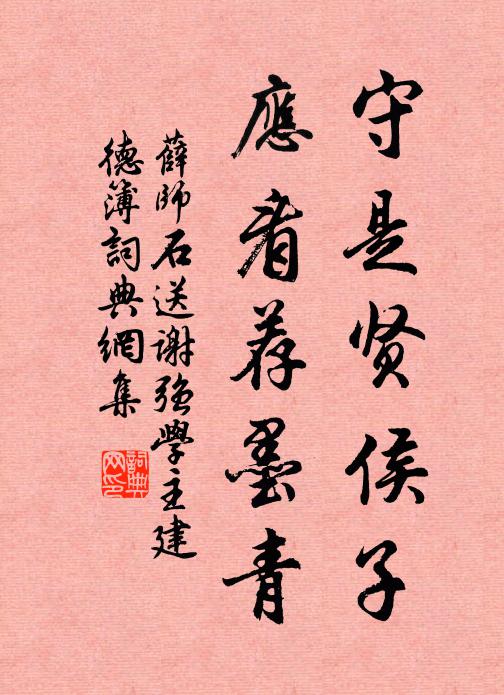 守是贤侯子
應看荐墨青
薛師石送謝强學主建
德簿詞典網集
詞典网印